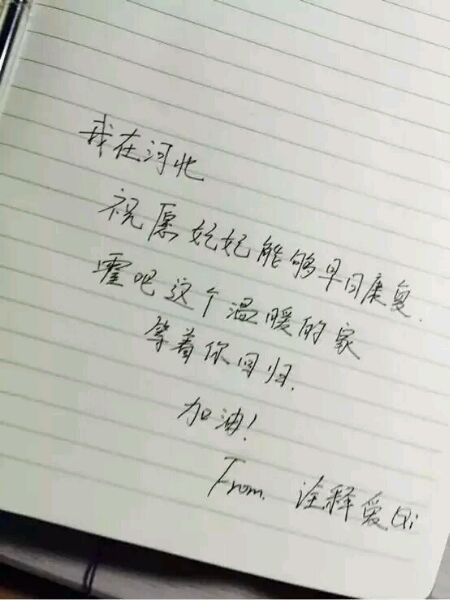 我在河北
祝愿妃妃能够早日康复.
霍吧这个温暖的家
等着你回归.
加油!
From. 诠释爱Qi